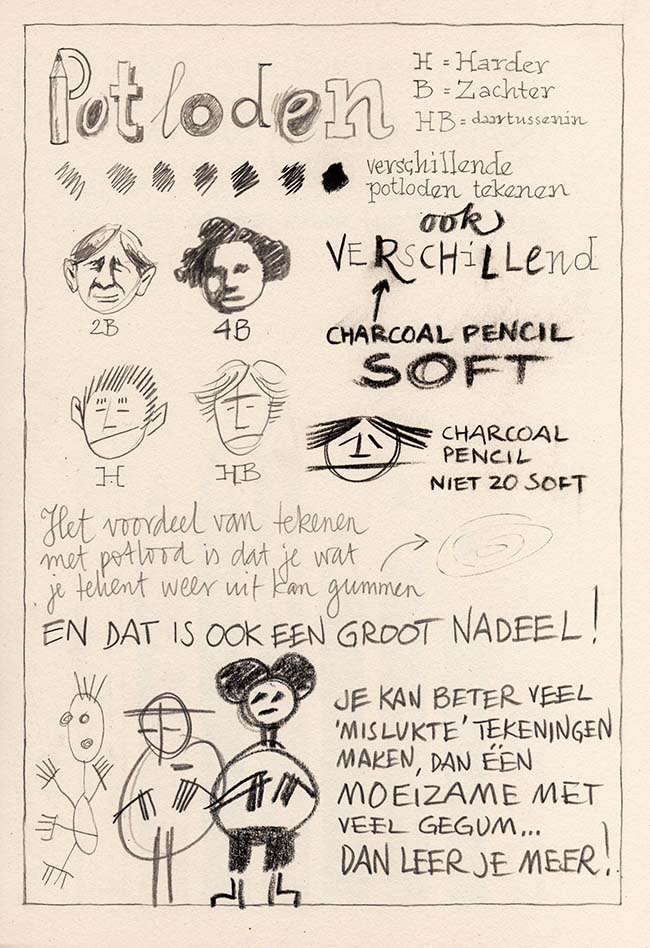 Potloden
H = Harder
B = Zachter
HB = daartussenin
verschillende
potloden tekenen
ook
VERSCHiLLend
CHARCOAL PENCIL
SOFT
2B
4B
H
HB
CHARCOAL
PENCIL
NIET ZO SOFT
Het voordeel van tekenen
met potlood is dat je wat
je tekent weer uit kan gummen
EN DAT IS OOK EEN GROOT NADEEL!
JE KAN BETER VEEL
'MISLUKTE' TEKENINGEN
MAKEN, DAN ÉÉN
MOEIZAME MET
VEEL GEGUM...
DAN LEER JE MEER!